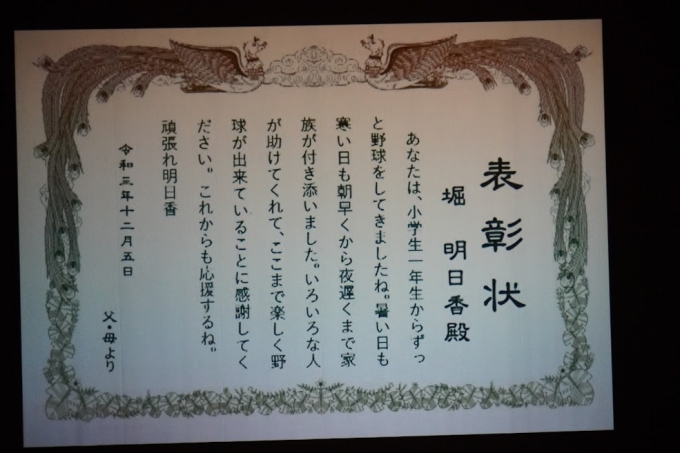 表彰状
堀 明日香殿
あなたは、小学生一年生からずっ
と野球をしてきましたね。暑い日も
寒い日も朝早くから夜遅くまで家
族が付き添いました。いろいろな人
が助けてくれて、ここまで楽しく野
球が出来ていることに感謝してく
ださい。これからも応援するね。
頑張れ明日香
令和三年十二月五日
父・母より